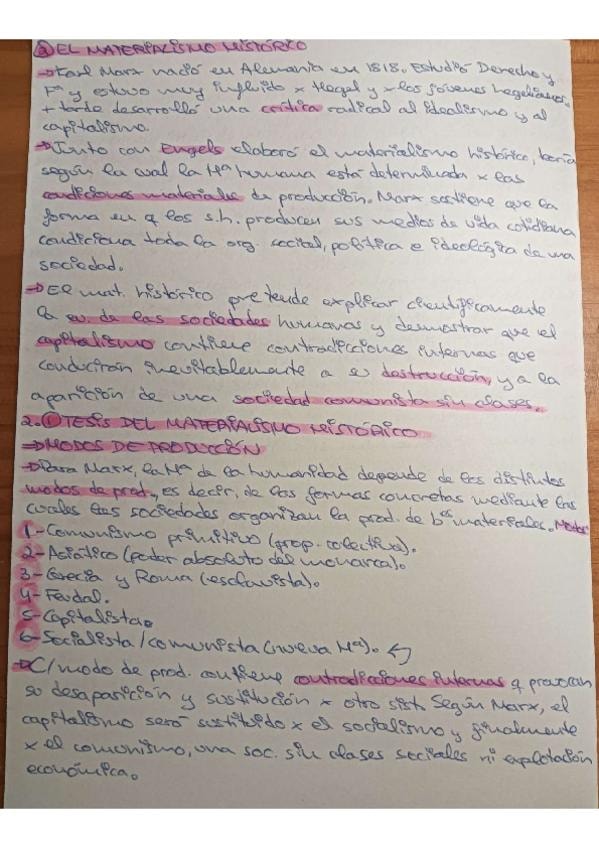 ② EL MATERIALISMO HISTÓRICO
→ Karl Marx nació en Alemania en 1818. Estudió Derecho y
Fª y estuvo muy influido x Hegel y x los jóvenes hegelianos,
+ tarde desarrolló una crítica radical al idealismo y al
capitalismo.
→ Junto con Engels elaboró el materialismo histórico, teoría
según la cual la Hª humana está determinada x las
condiciones materiales de producción. Marx sostiene que la
forma en q los s.h. producen sus medios de vida cotidiana
condiciona toda la org. social, política e ideológica de una
sociedad.
→ El mat. histórico pretende explicar científicamente
la ev. de las sociedades humanas y demostrar que el
capitalismo contiene contradicciones internas que
conducirán inevitablemente a su destrucción, y a la
aparición de una sociedad comunista sin clases.
2.① TESIS DEL MATERIALISMO HISTÓRICO
→ MODOS DE PRODUCCIÓN
→ Para Marx, la Hª de la humanidad depende de los distintos
modos de prod., es decir, de las formas concretas mediante las
cuales las sociedades organizan la prod. de bᵉˢ materiales.
1- Comunismo primitivo (prop. colectiva).
2- Asiático (poder absoluto del monarca).
3- Grecia y Roma (esclavista).
4- Feudal.
5- Capitalista.
6- Socialista/comunista (nueva Hª). ↵
→ C/ modo de prod. contiene contradicciones internas q provocan
su desaparición y sustitución x otro sist. Según Marx, el
capitalismo será sustituido x el socialismo y finalmente
x el comunismo, una soc. sin clases sociales ni explotación
económica.